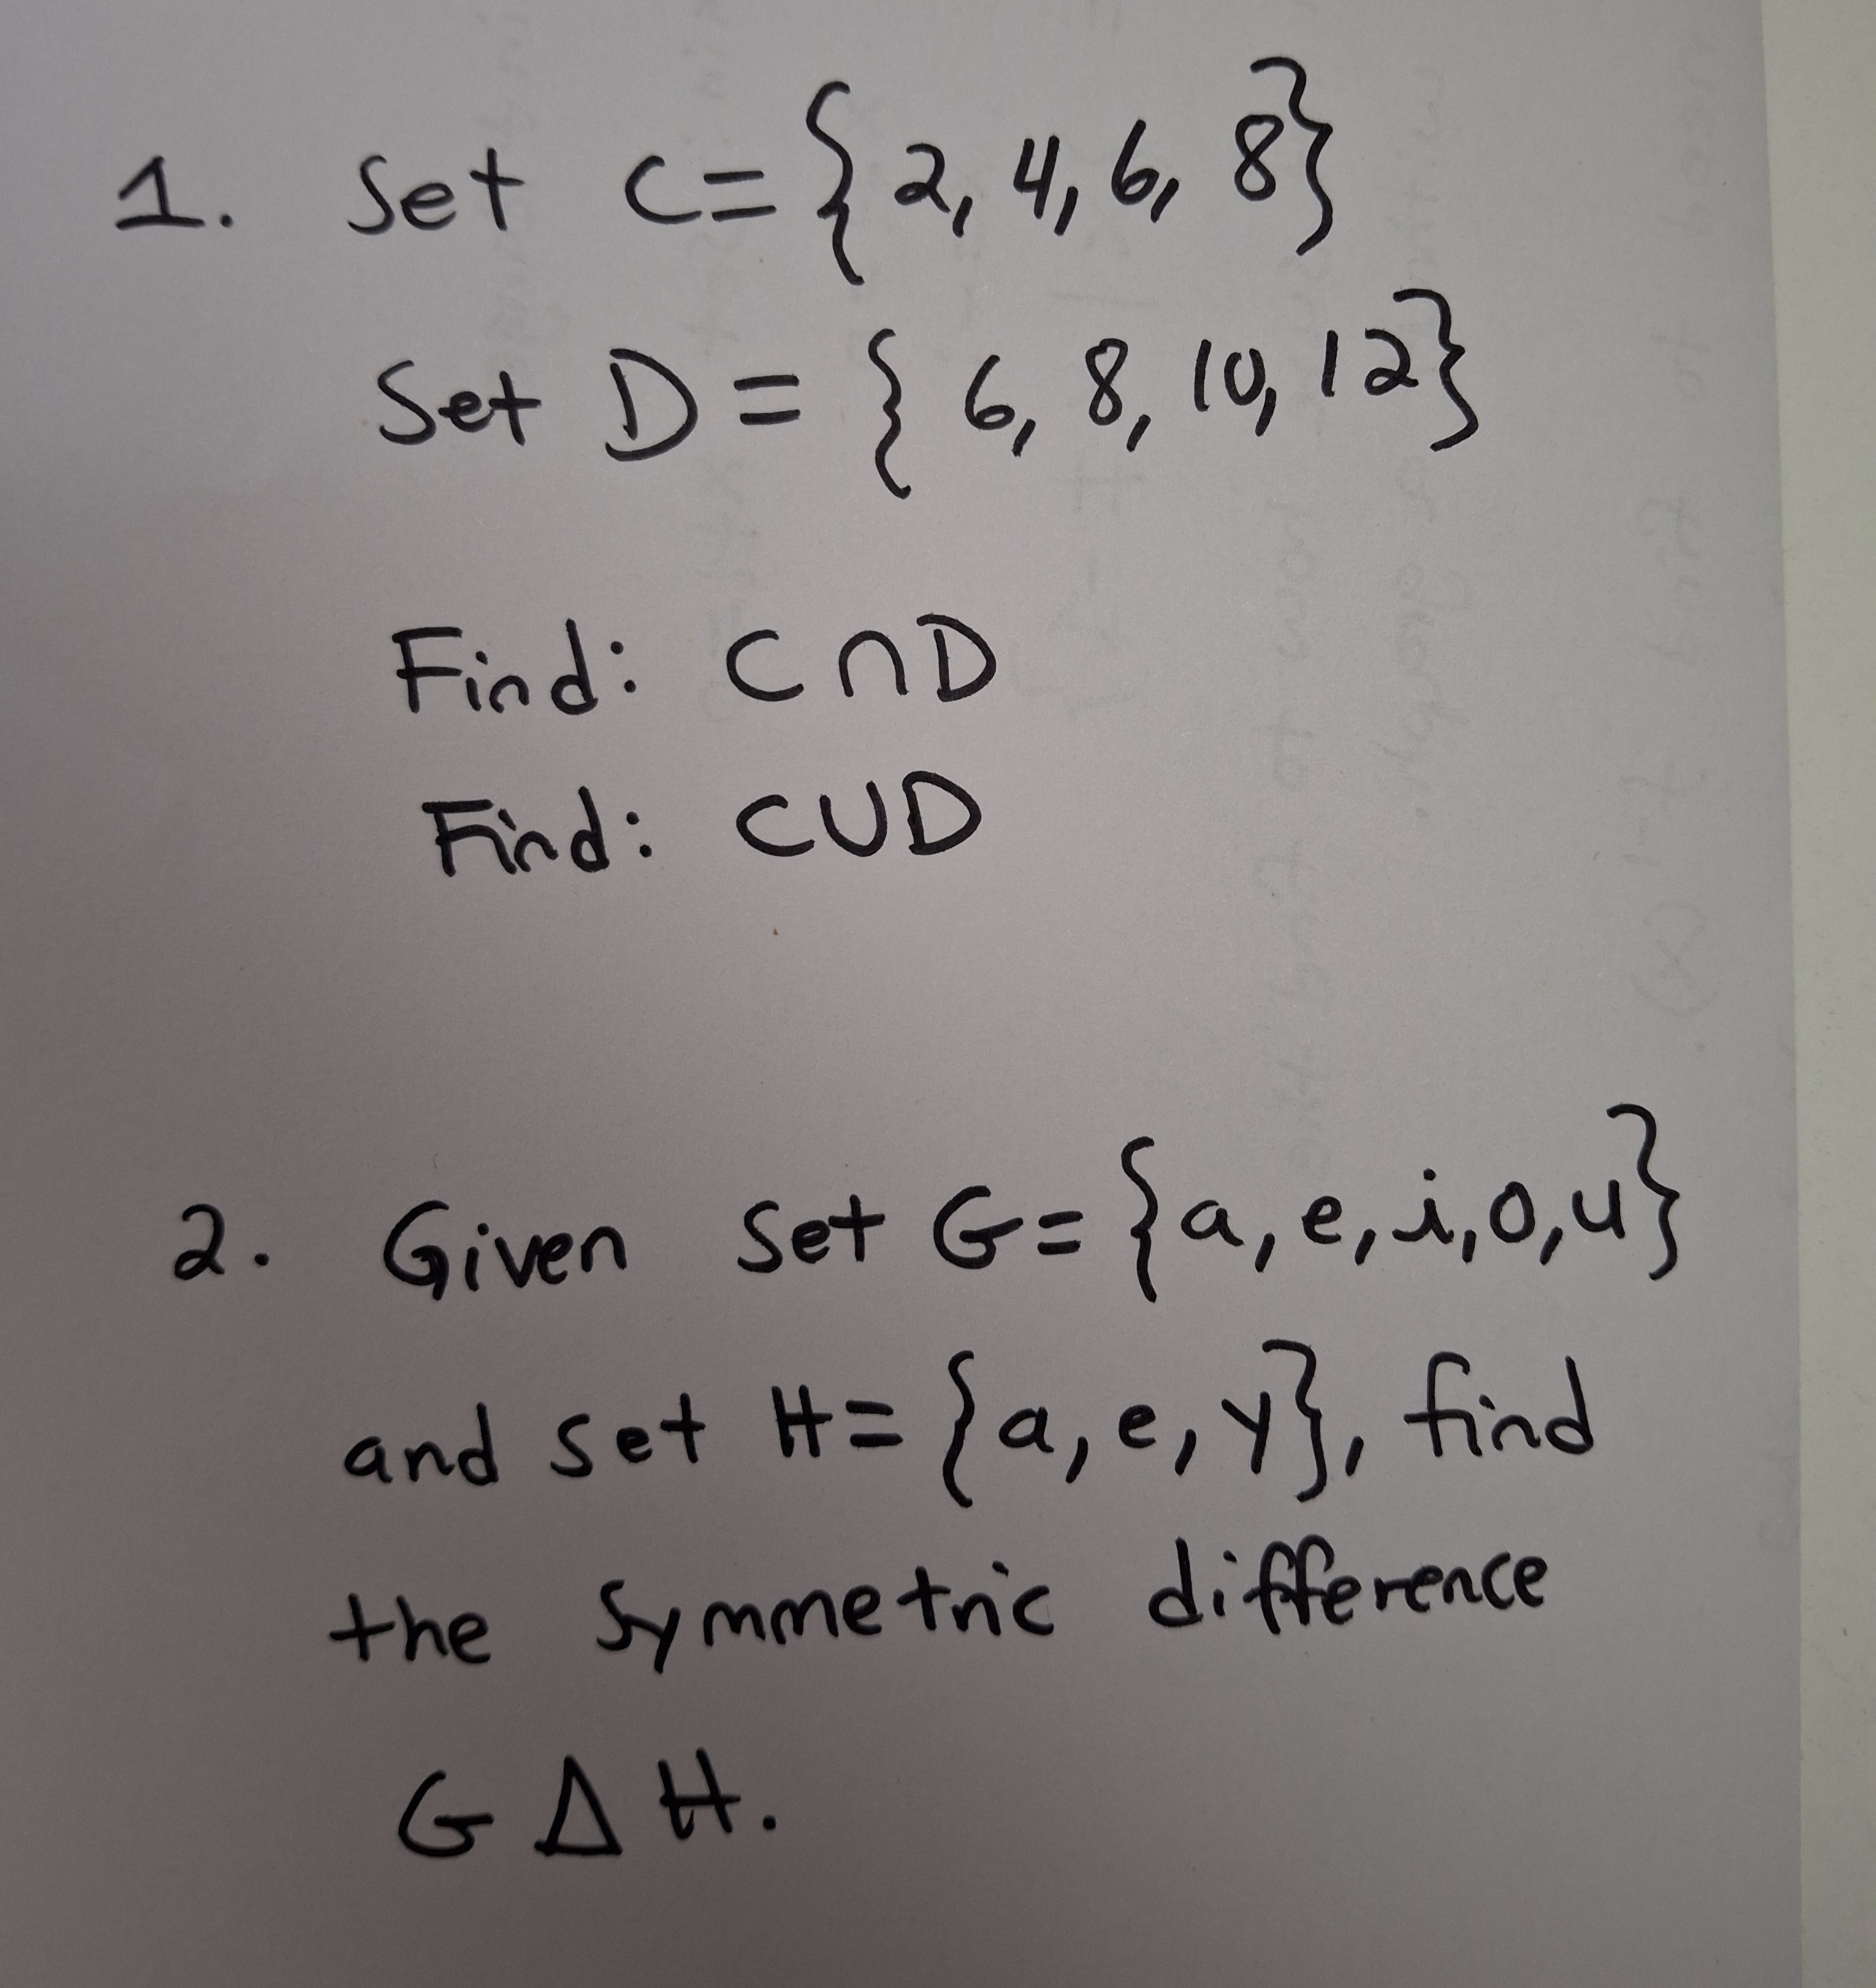 1. Set C = {2, 4, 6, 8}
Set D = {6, 8, 10, 12}
Find: C∩D
Find: C∪D
2. Given set G = {a, e, i, o, u}
and set H = {a, e, y}, find
the symmetric difference
G Δ H.